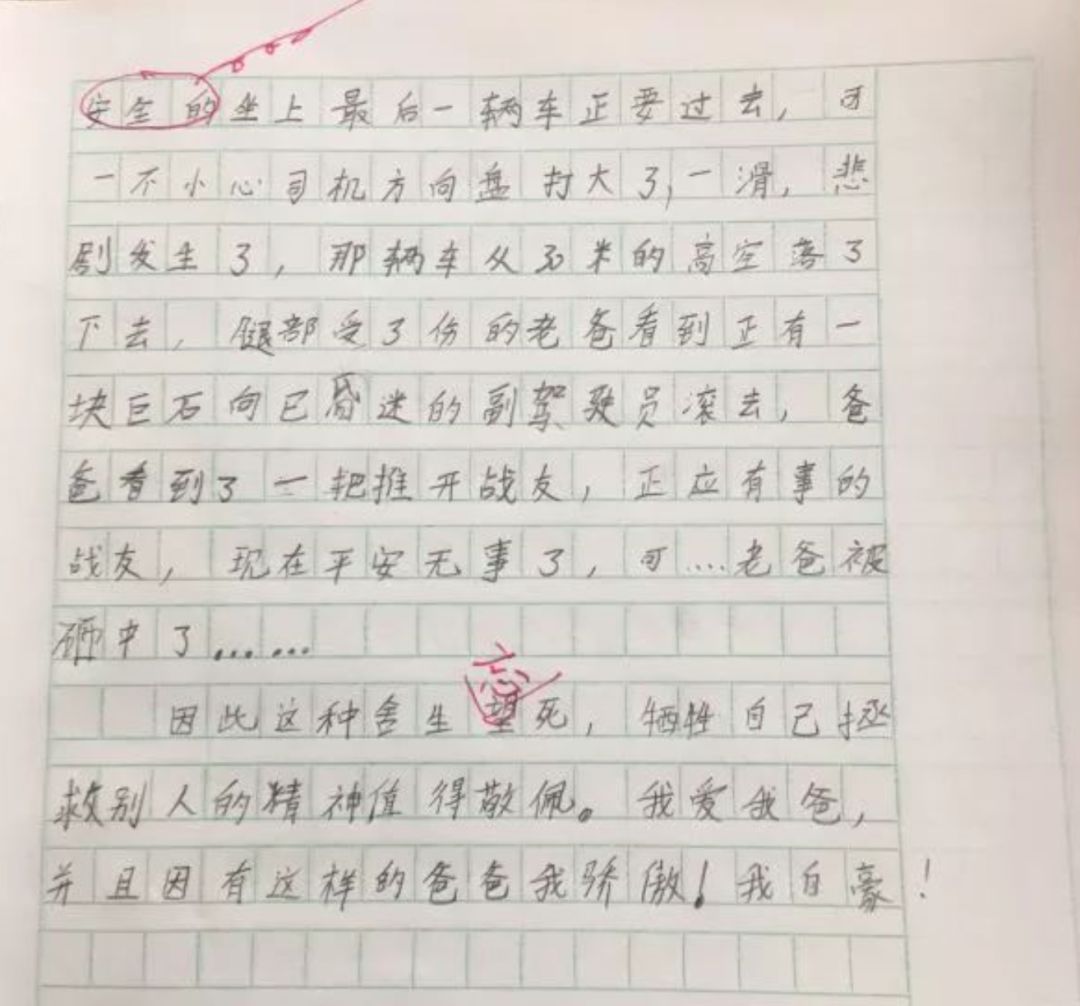 安全的坐上最后一辆车正要过去,可
一不小心司机方向盘打大了,一滑,悲
剧发生了,那辆车从30米的高空落了
下去,腿部受了伤的老爸看到正有一
块巨石向已昏迷的副驾驶员滚去,爸
爸看到了一把推开战友,正应有事的
战友,现在平安无事了,可....老爸被
砸中了......
忘
因此这种舍生望死,牺牲自己拯
救别人的精神值得敬佩。我爱我爸,
并且因有这样的爸爸我骄傲!我自豪!